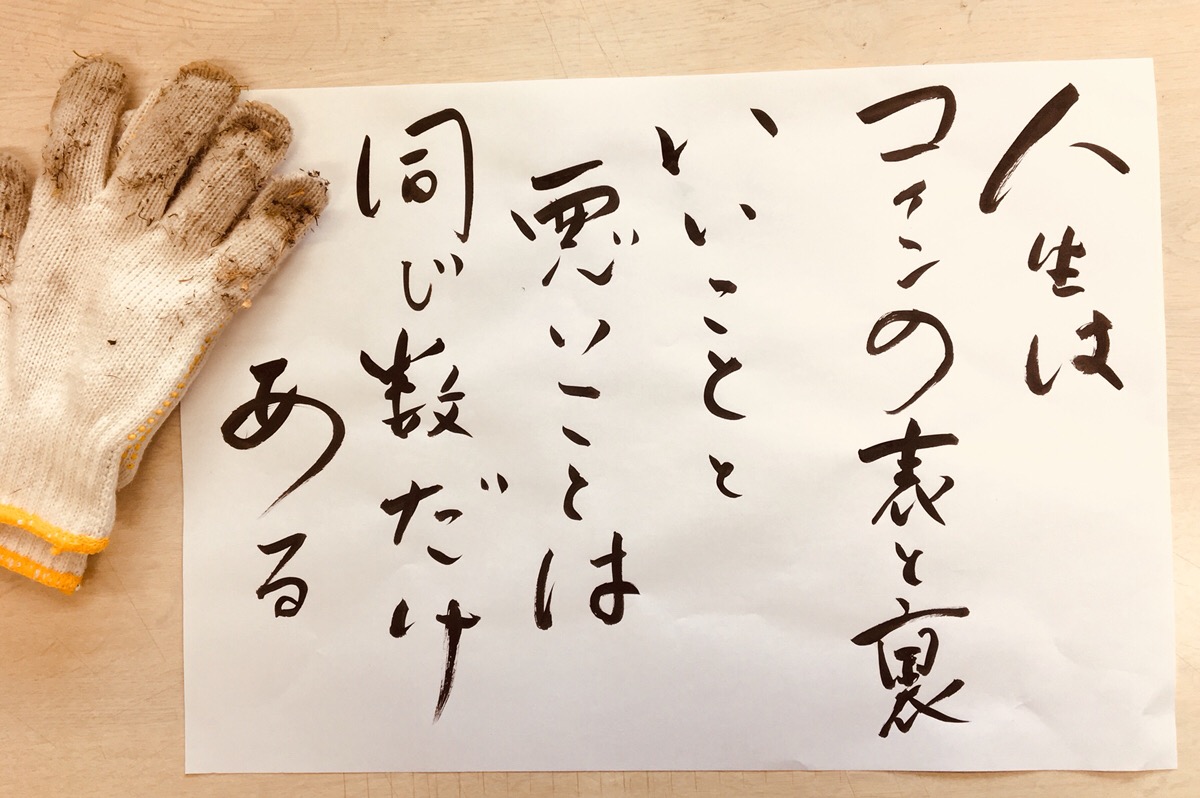 人生は
コインの表と裏
いいことと
悪いことは
同じ数だけ
ある